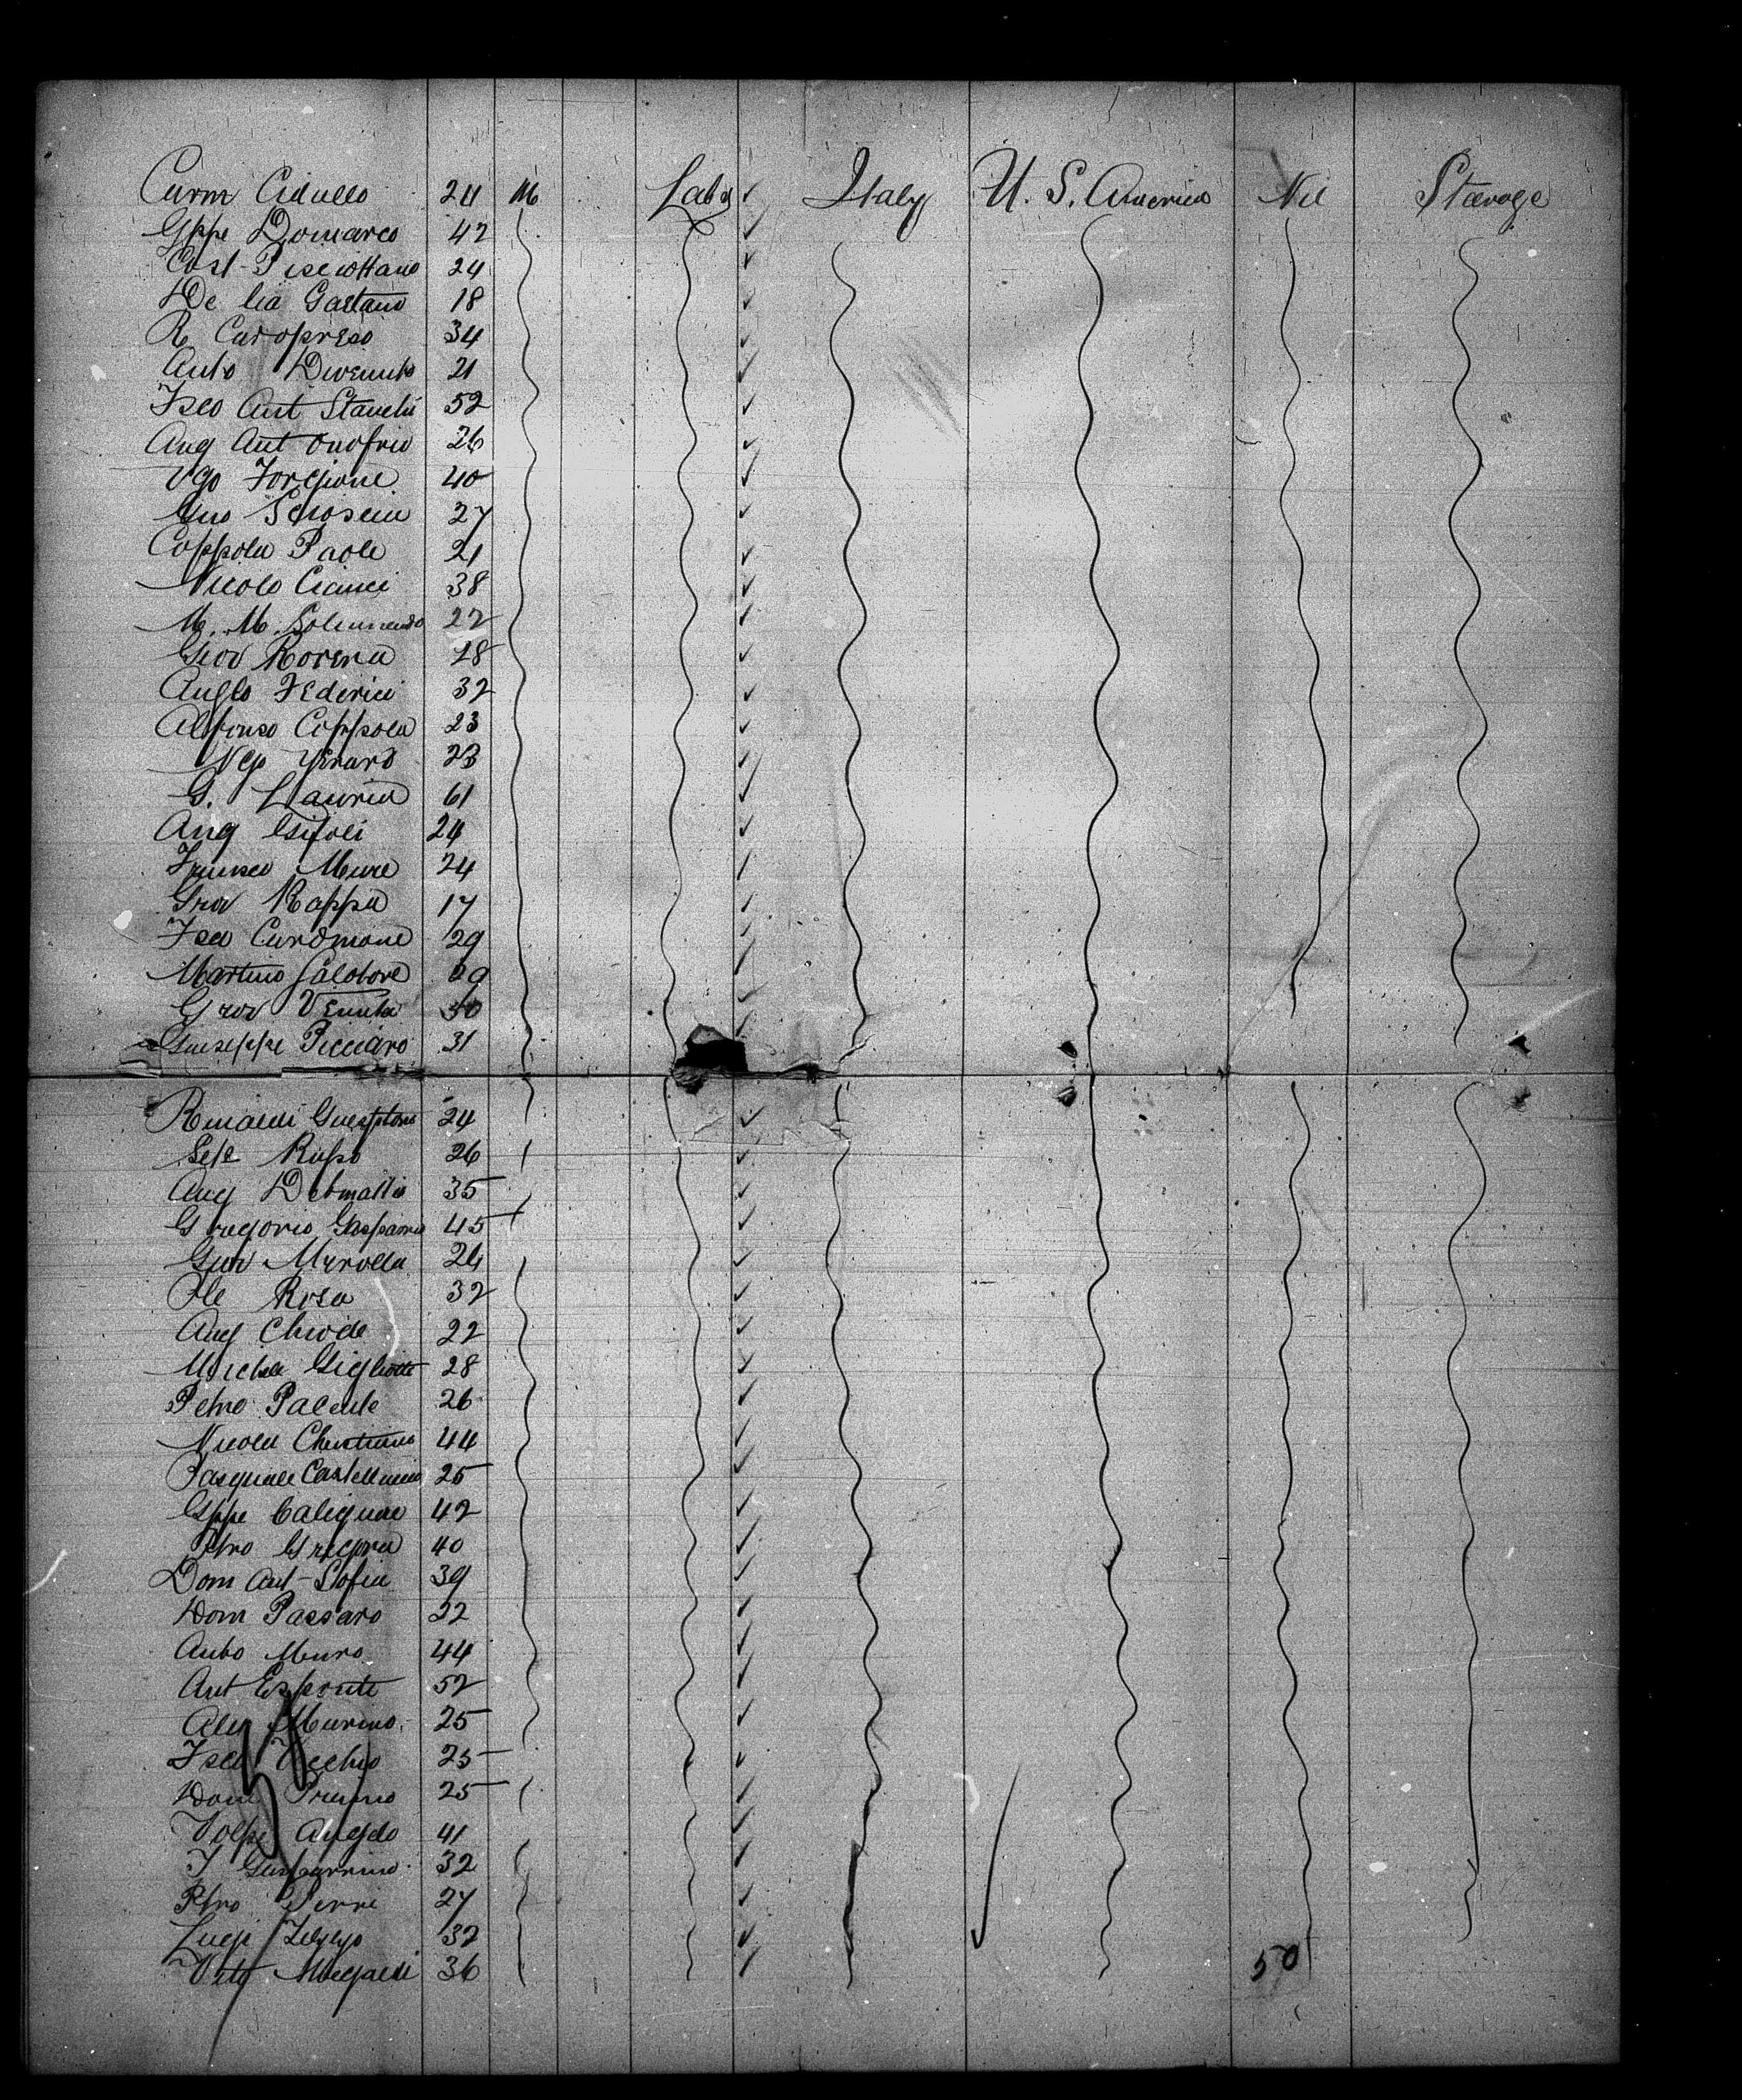 Carm Cidullo 24 M Labr Italy U. S. America Nil Steerage
Gppe Domarco 42
Cost-Pisciottano 24
De lia Gaetano 18
R. Caropreso 34
Anto Divenuto 21
Fsco Ant Stanchi 52
Ang Ant Onofrio 26
Vgo Forgione 40
27
Coppola Paole 21
Nicolo Cianci 38
M. M. 22
Giov Rovena 28
Anglo Federici 32
Alfonso Coppola 23
23
G. Lauria 61
Ang Grifoli 24
Mure 24
Giov Rappa 17
Fsco Cardmone 29
Martino Salvatore 29
Giov Venuta 30
Giuseppe Picciaro 31
Rinaldi 24
Sele Russo 26
Ang Delmastis 35
Gregorio Gasparro 45
Giov Merolla 24
De Rosa 32
Ang Chiode 22
Michele Gigliotti 28
Petro Palente 26
Nicola Christiano 44
Pasquale Castelluccio 25
Gppe Caligiure 42
Ptro Gregoria 40
Dom Ant-Sofia 39
Dom Passaro 22
Anto Muro 44
Ant Esposite 52
Ales Murino 25
Fsco Vecchio 25
Dom Primno 25
Volpe Angelo 41
F Gasparrino 32
Ptro Perri 27
Luigi 32
Vito 36 50